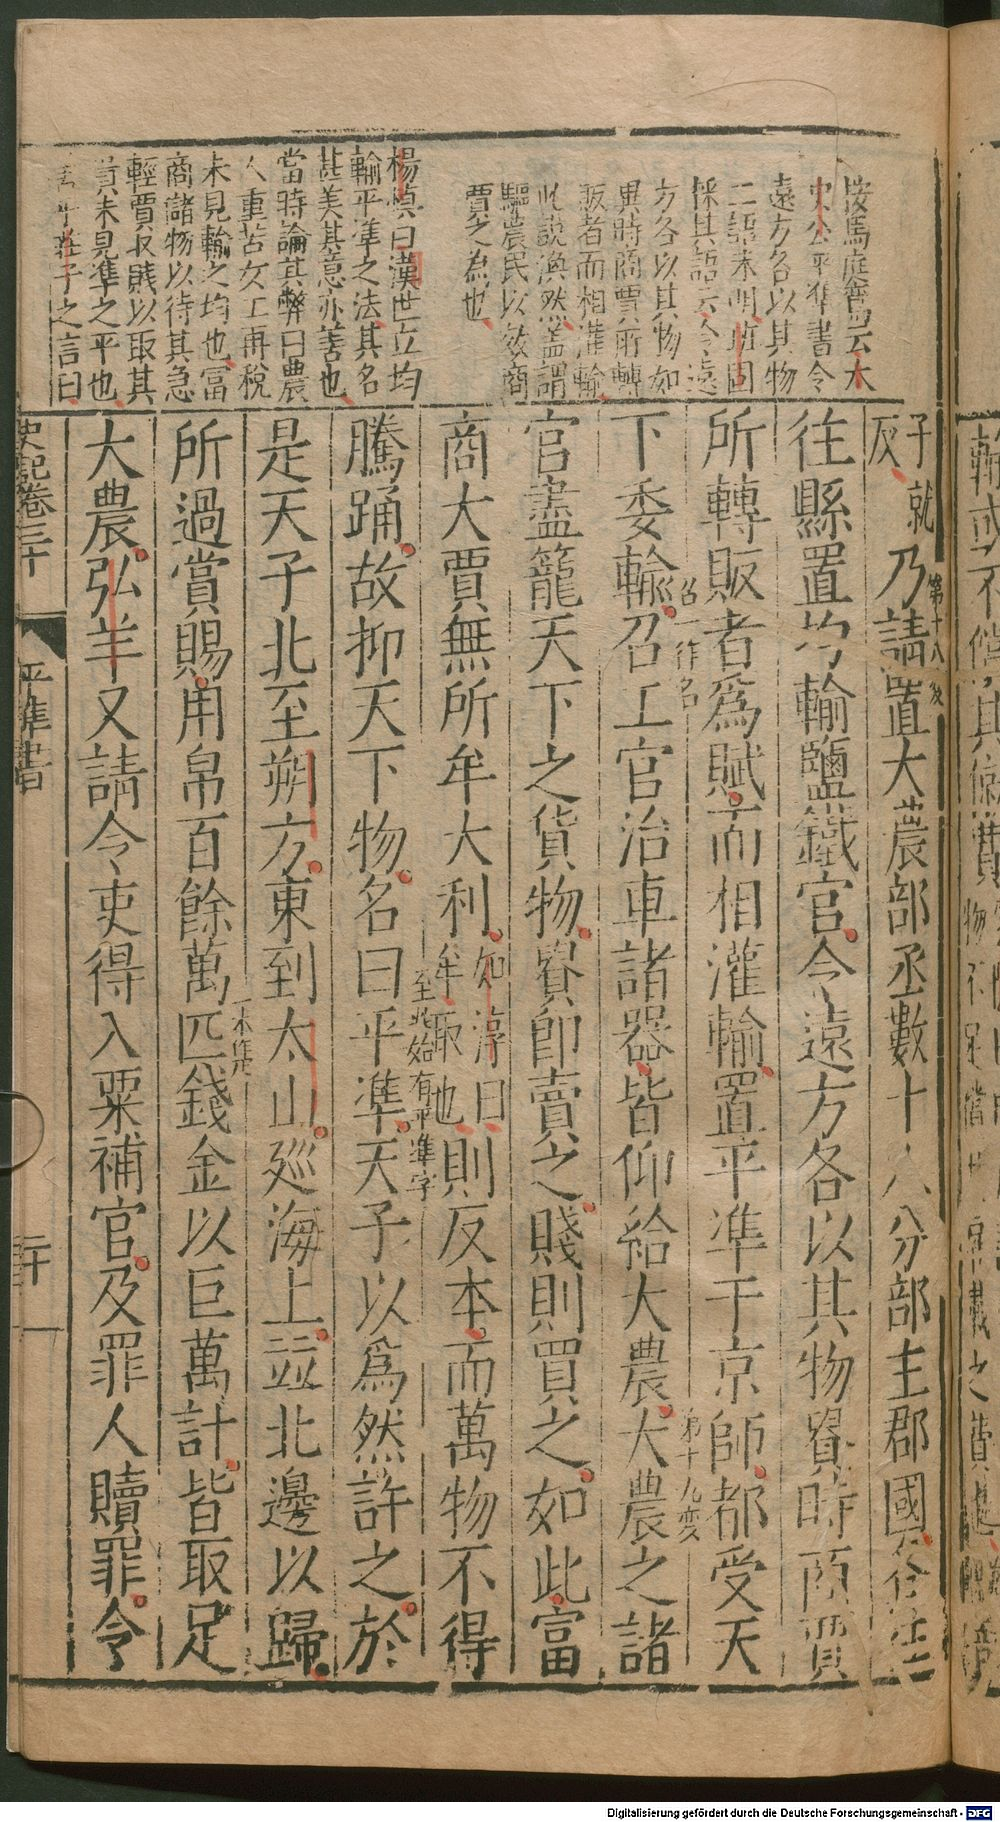 按馬庭鸞云太
史公平準書令
遠方各以其物
二語未明班固
採其語云令遠
方各以其物如
異時商賈所轉
販者而相灌輸
此說渙然蓋謂
驅農民以效商
賈之為也
楊慎曰漢世立均
輸平準之法其名
甚美其意亦善也
當時論其弊曰農
人重苦女工再稅
未見輸之均也富
商儲物以待其急
輕賈収賤以取其
貴未見準之平也
莊子之言曰
子就
反
乃請置大農部丞數十人分部主郡國各往往
第十八変
往縣置均輸鹽鐵官令遠方各以其物貴時商賈
所轉販者爲賦而相灌輸置平準于京師都受天
召一作名
第十九変
下委輸召工官治車諸器皆仰給大農大農之諸
官盡籠天下之貨物貴卽賣之賤則買之如此富
商大賈無所牟大利
如淳曰
牟取也
則反本而萬物不得
至此始有平準字
騰踊故抑天下物名曰平準天子以爲然許之於
是天子北至朔方東到太山廵海上並北邊以歸
一本作
所過賞賜用帛百餘萬匹錢金以巨萬計皆取足
大農弘羊又請令吏得入粟補官及罪人贖罪令
史記卷三十
平準書
二十一
Digitalisierung gefördert durch die Deutsche Forschungsgemeinschaft - DFG